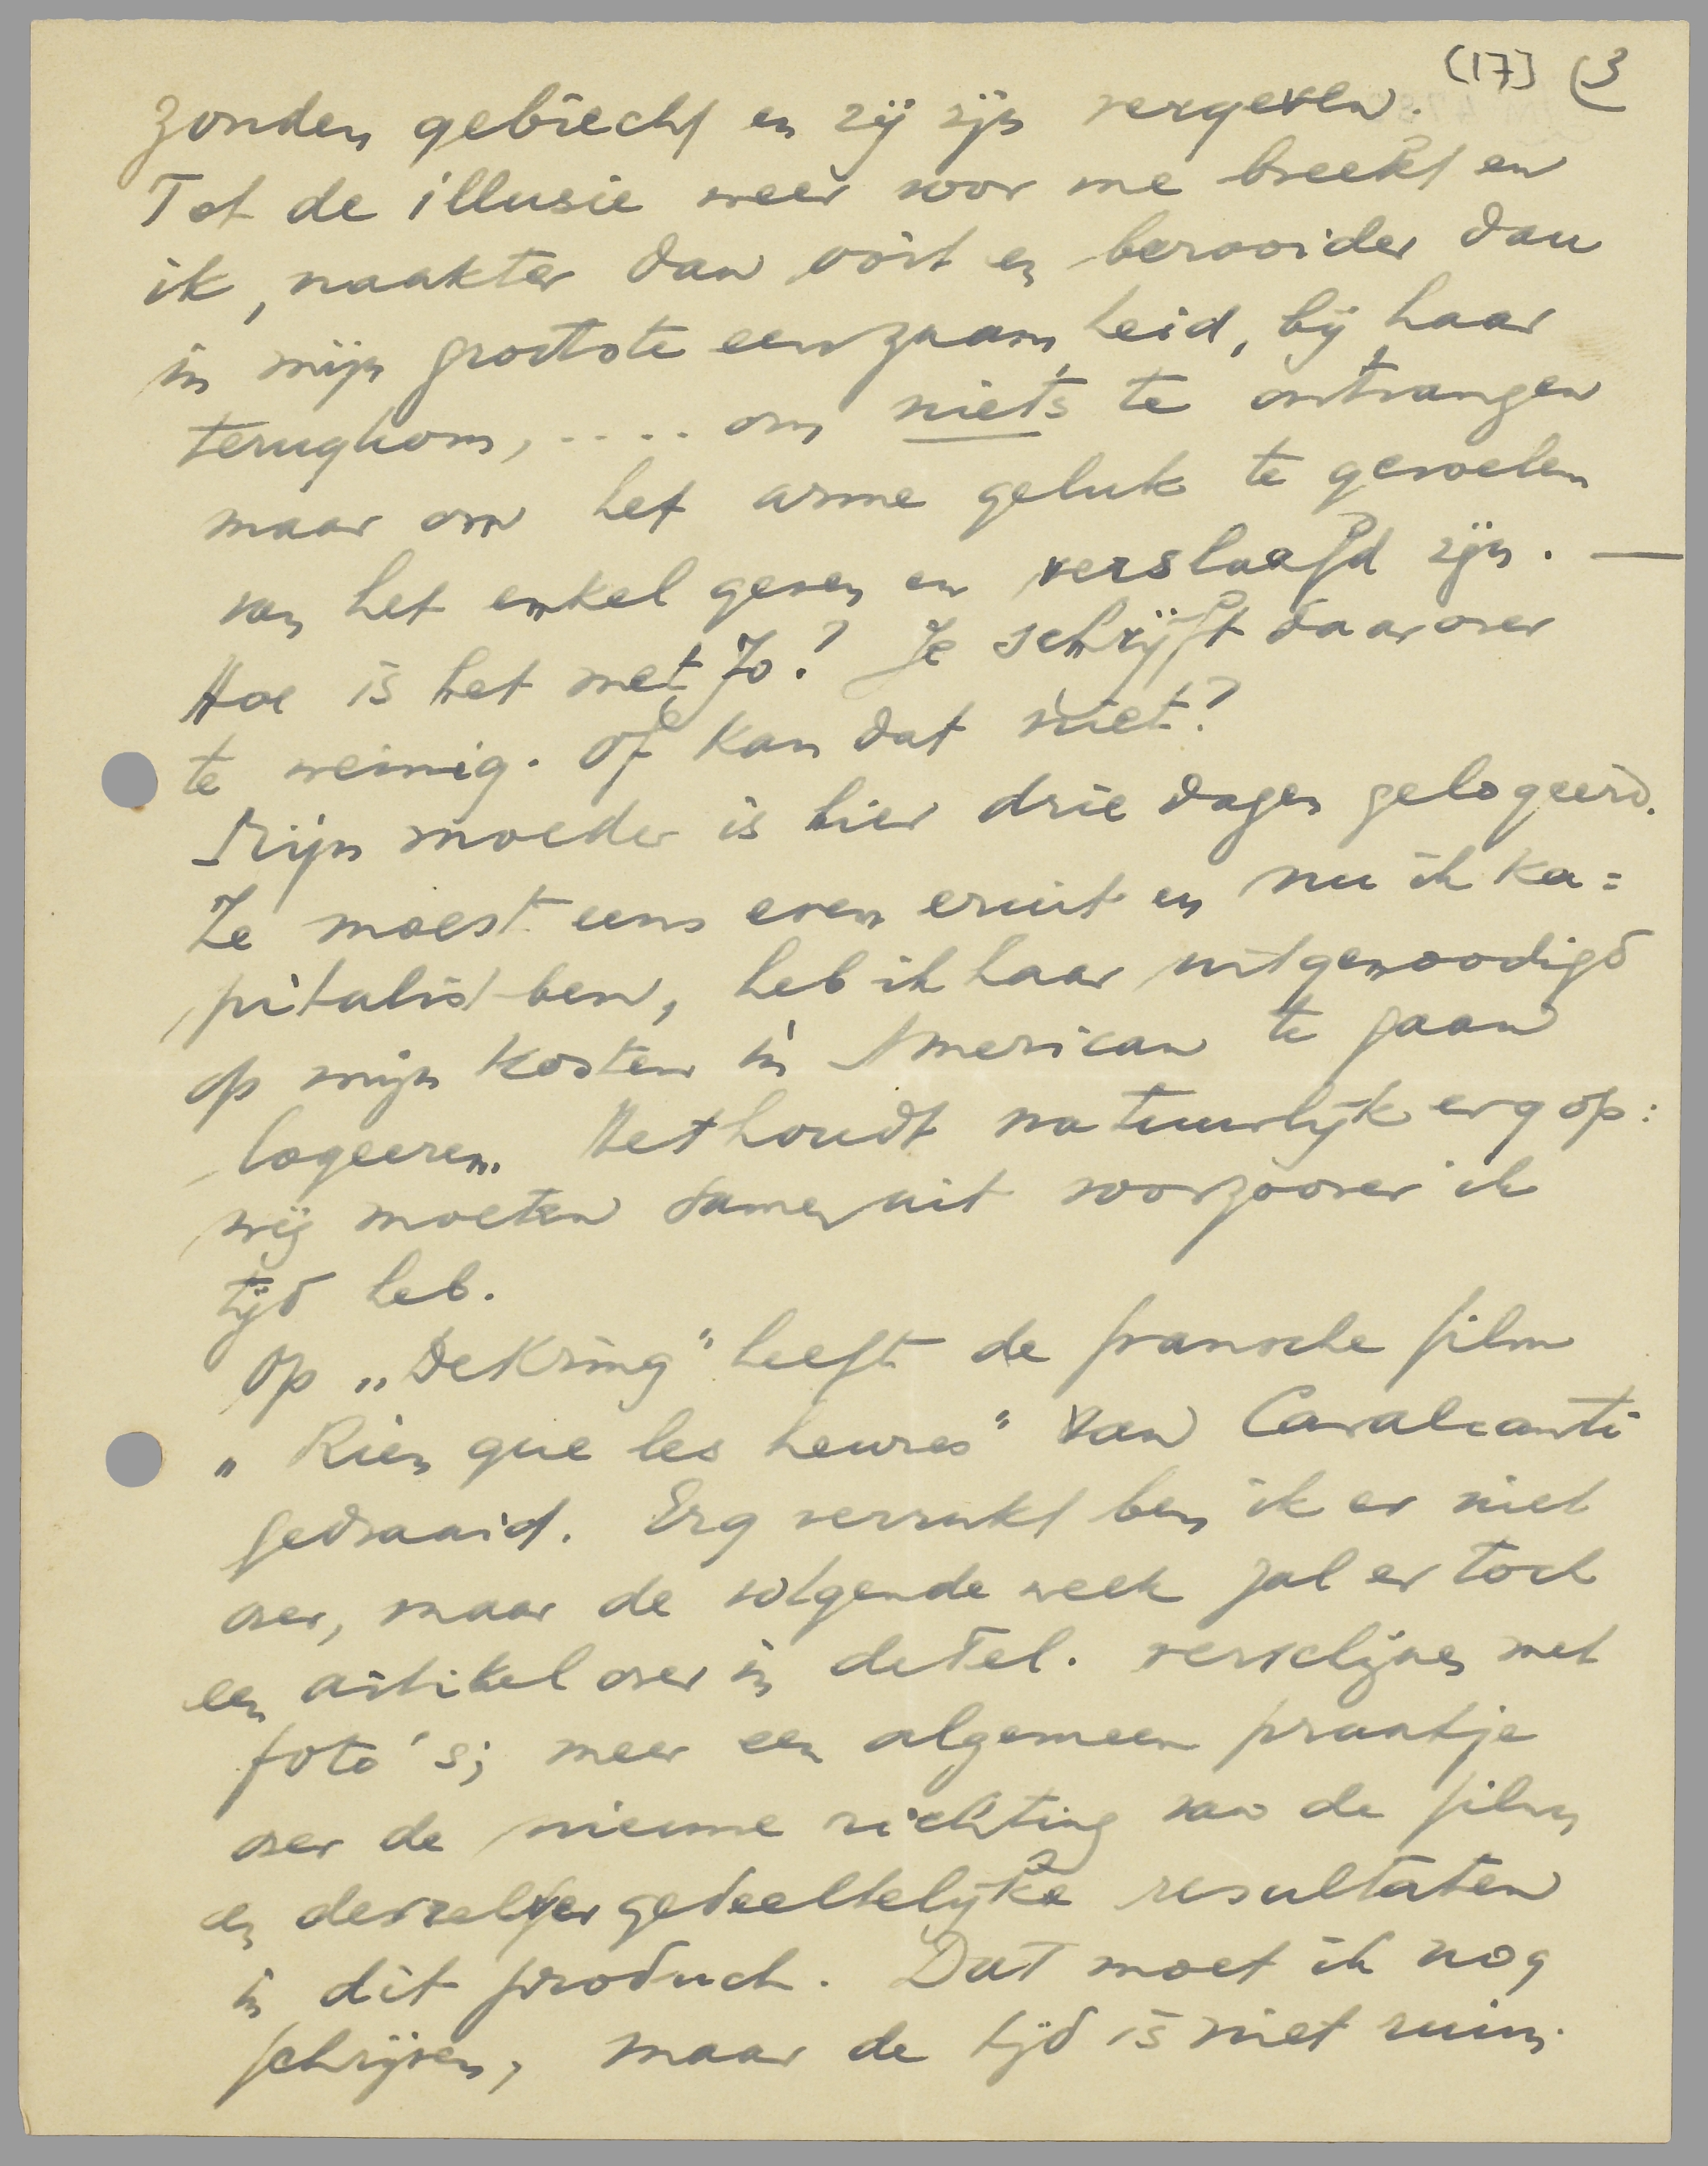 (17) (3
zonden gebiecht en zij zijn vergeven.
Tot de illusie weer voor me breekt en
ik, naakter dan ooit en berooider dan
in mijn grootste eenzaamheid, bij haar
terugkom, ..... om niets te ontvangen
maar om het arme geluk te gevoelen
van het enkel geven en verslaafd zijn. —
Hoe is het met Jo? Je schrijft daarover
te weinig. Of kan dat niet?
Mijn moeder is hier drie dagen gelogeerd.
Ze moest eens even eruit en nu ik ka=
pitalist ben, heb ik haar uitgenoodigd
op mijn kosten in American te gaan
logeeren. Het houdt natuurlijk erg op:
wij moeten samen uit voorzoover ik
tijd heb.
Op „De Kring" heeft de fransche film
„Rien que les heures" van Cavalcanti
gedraaid. Erg verrukt ben ik er niet
over, maar de volgende week zal er toch
een artikel over in de Tel. verschijnen met
foto's; meer een algemeen praatje
over de nieuwe richting van de film
en derzelver gedeeltelijke resultaten
in dit product. Dat moet ik nog
schrijven, maar de tijd is niet ruim.